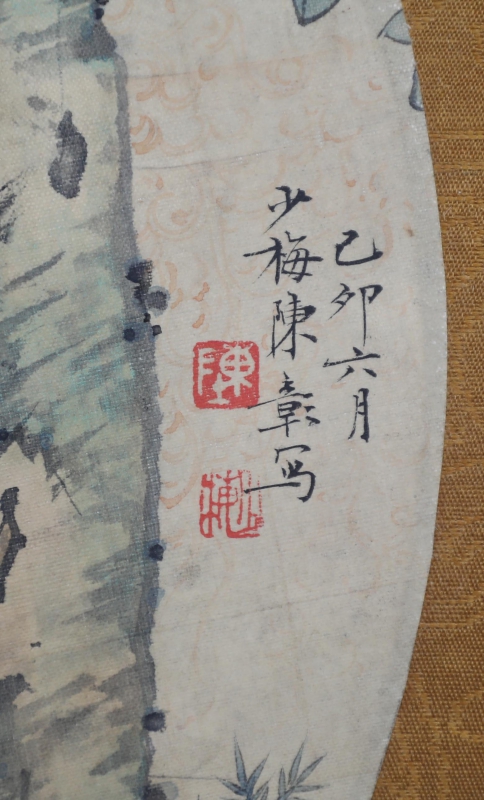 己卯六月
少梅陳彰写
陳